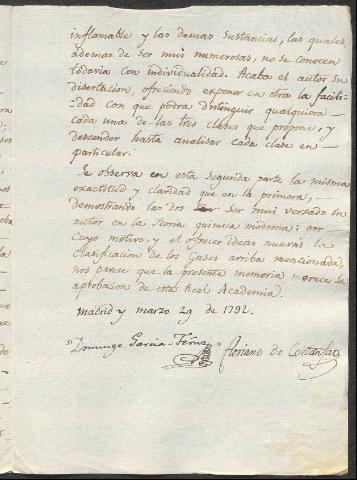 inflamable y las demas sustancias, las quales,
ademas de ser mui numerosas, no se conocen
todavia con individualidad. Acaba el autor su
disertacion, ofreciendo exponer en otra la facili-
dad con que podra distinguir qualquiera
cada una de las tres clases que propone, y
descender hasta analisar cada clase en
particular.
Se observa en esta segunda parte la misma
exactitud y claridad que en la primera,
demostrando las dos ser mui versado su
autor en la teoria quimica moderna: por
cuyo motivo, y el ofrecer ideas nuevas la
clasificacion de los Gases arriba mencionada,
nos parece que la presente memoria merece la
aprobacion de esta Real Academia.
Madrid y marzo 29 de 1792.
Domingo Garcia Fernz
Floriano de Coetanfao